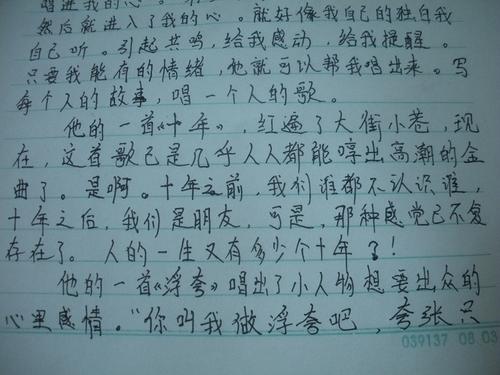 唱进我的心。
然后就进入了我的心。就好像我自己的独白我
自己听。引起共鸣,给我感动,给我提醒。
只要我能有的情绪,他就可以帮我唱出来。写
每个人的故事,唱一个人的歌。
他的一首《十年》,红遍了大街小巷,现
在,这首歌已是几乎人人都能哼出高潮的金
曲了。是啊。十年之前,我们谁都不认识谁,
十年之后,我们是朋友,可是,那种感觉已不复
存在了。人的一生又有多少个十年?!
他的一首《浮夸》唱出了小人物想要出众的
心里感情。“你叫我做浮夸吧,夸张只
039137 08.03